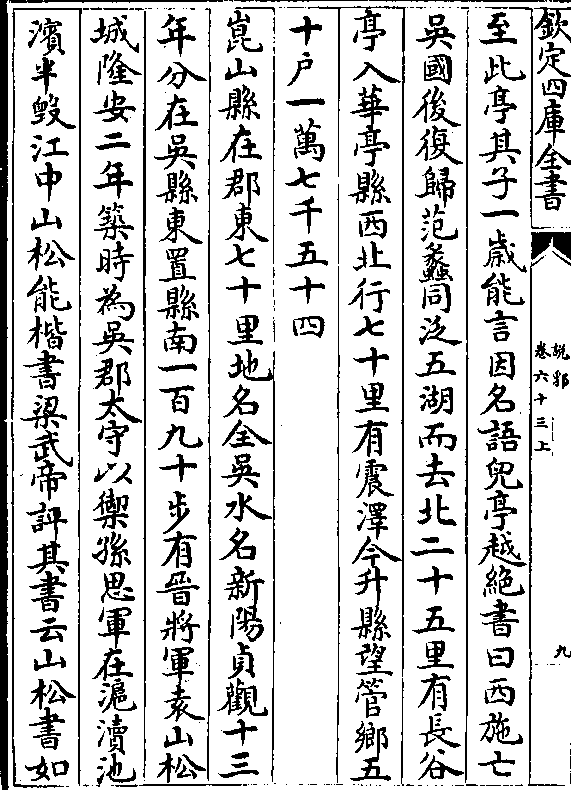 欽定四庫全書
說郛
卷六十三上
九
至此亭其子一歲能言因名語兒亭越絶書曰西施亡
吳國後復歸范蠡同泛五湖而去北二十五里有長谷
亭入華亭縣西北行七十里有震澤今升縣望管鄉五
十户一萬七千五十四
崑山縣在郡東七十里地名全吳水名新陽貞觀十三
年分在吳縣東置縣南一百九十步有晉將軍袁山松
城隆安二年築時為吳郡太守以禦孫恩軍在滬瀆池
濱半毀江中山松能楷書梁武帝評其書云山松書如